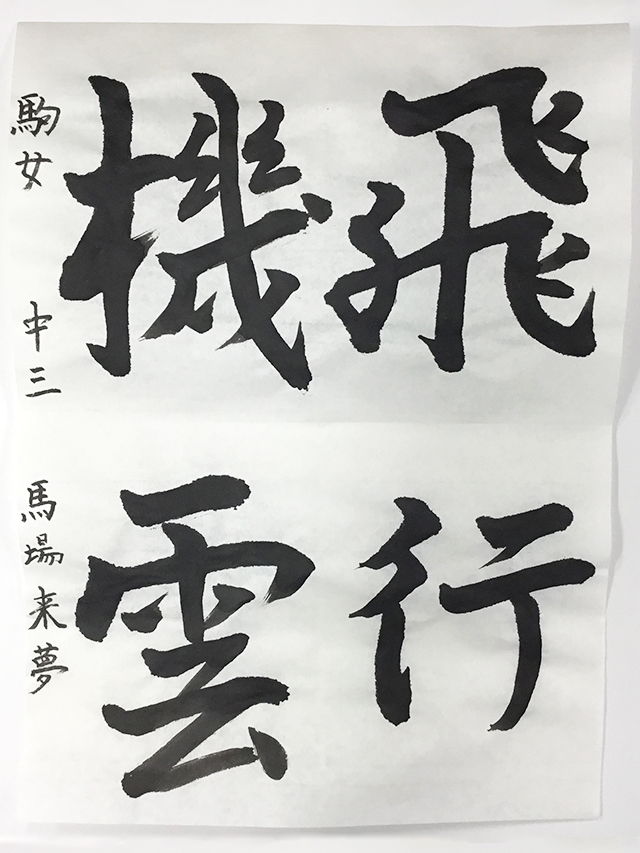 飛行
機雲
駒女 中三 馬場来夢